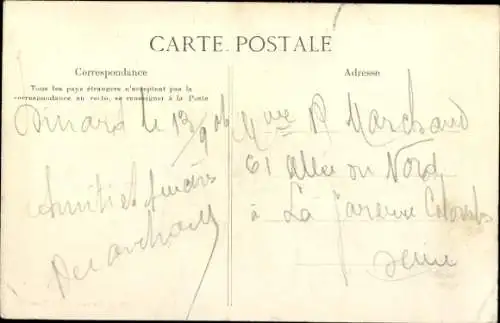 CARTE POSTALE
Correspondance
Tous les pays étrangers n'acceptent pas la
correspondance au recto, se renseigner à la Poste
Dinard le 13/9 06
Amitiés
Adresse
Mme R Marchand
61 Allée du Nord
à La Garenne Colombes
Seine